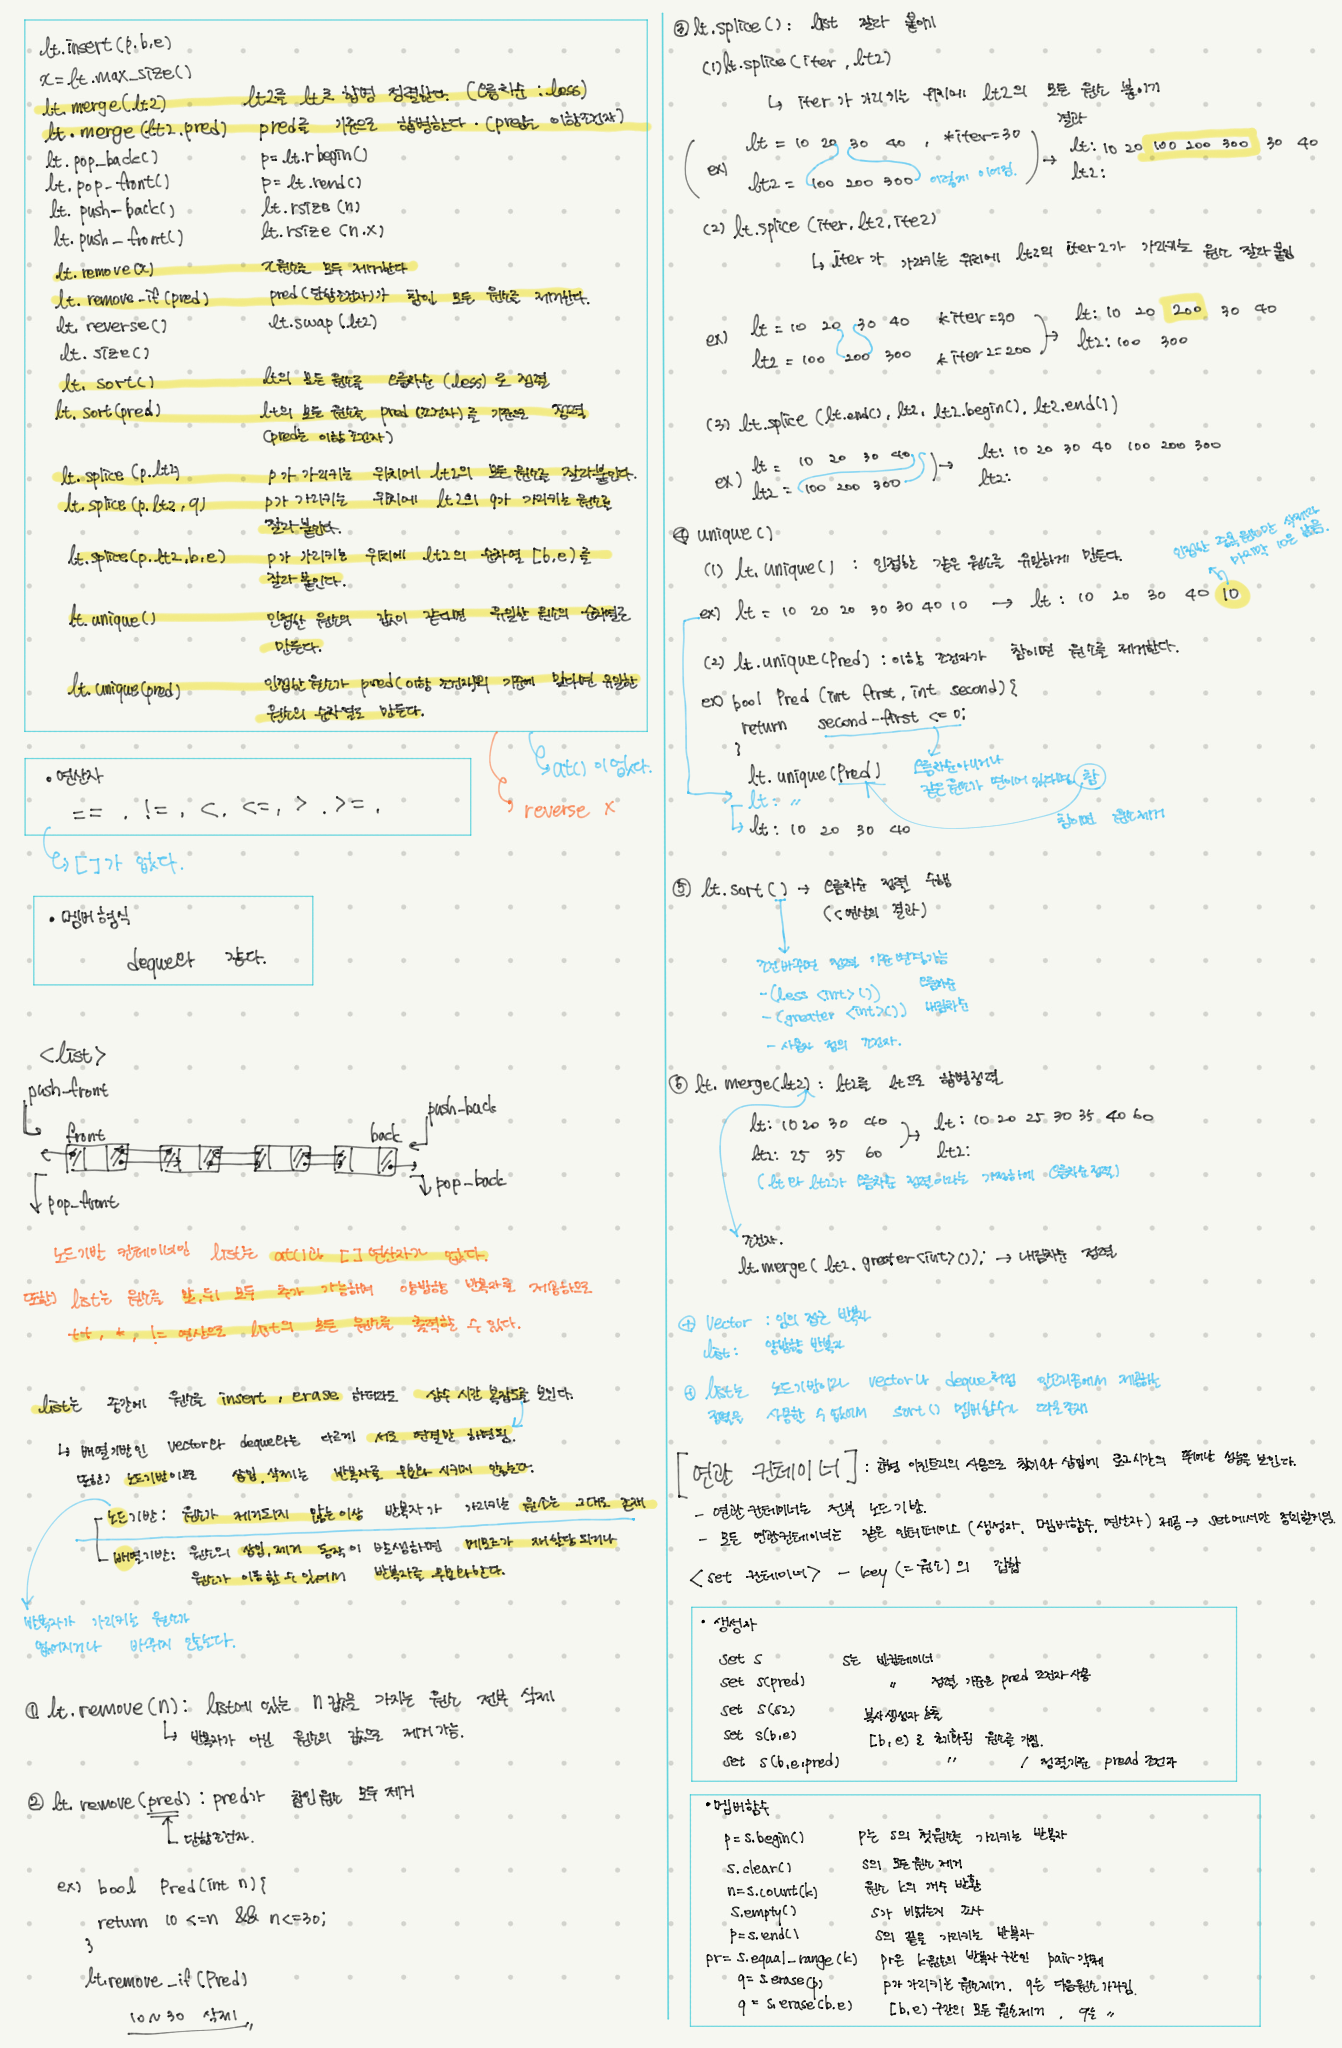 lt.insert(p,b,e)
x=lt.max_size()
lt.merge(lt2) lt2를 lt로 합병 정렬한다. (오름차순 : less)
lt.merge(lt2.pred) pred를 기준으로 합병한다. (pred는 이항조건자)
lt.pop_back() p=lt.rbegin()
lt.pop-front() p=lt.rend()
lt.push-back() lt.rsize(n)
lt.push_front() lt.rsize(n.x)
lt.remove(x) x원소를 모두 제거한다
lt.remove_if(pred) pred(단항조건자)가 참인 모든 원소를 제거한다.
lt.reverse() lt.swap(lt2)
lt.size()
lt.sort() lt의 모든 원소를 오름차순(less)로 정렬
lt.sort(pred) lt의 모든 원소를 pred(조건자)를 기준으로 정렬
(pred는 이항 조건자)
lt.splice(p.lt2) p가 가리키는 위치에 lt2의 모든 원소를 잘라붙인다.
lt.splice(p.lt2,q) p가 가리키는 위치에 lt2의 q가 가리키는 원소를
잘라 붙인다.
lt.splice(p.lt2,b,e) p가 가리키는 위치에 lt2의 순차열 [b,e)를
잘라 붙인다.
lt.unique() 인접한 원소의 값이 같다면 유일한 원소의 순차열로
만든다.
lt.unique(pred) 인접한 원소가 pred(이항 조건자)의 기준에 맞다면 유일한
원소의 순차열로 만든다.
↳ at()이 없다.
↳ reverse x
• 연산자
== . != , <. <=, > . >= ,
↳ []가 없다.
• 멤버형식
deque와 같다.
<list>
push-front
push-back
front
back
pop-back
pop-front
노드기반 컨테이너인 list는 at()과 []연산자가 없다.
또한) list는 원소를 앞,뒤 모두 추가 가능하며 양방향 반복자를 제공하므로
++, *, != 연산으로 list의 모든 원소를 출력할 수 있다.
list는 중간에 원소를 insert, erase 하더라도 상수 시간 복잡도를 보인다.
↳ 배열기반인 vector와 deque와는 다르게 서로 연결만 하면됨.
또한) 노드기반이므로 삽입,삭제는 반복자를 무효화 시키지 않는다.
노드기반: 원소가 제거되지 않는이상 반복자가 가리키는 원소는 그대로 존재
배열기반: 원소의 삽입,제거 동작이 발생하면 메모리가 재할당 되거나
원소가 이동할 수 있어서 반복자를 무효화한다.
반복자가 가리키는 원소가
없어지거나 바뀌지 않는다.
① lt.remove(n): list에 있는 n값을 가지는 원소 전부 삭제
↳ 반복자가 아닌 원소의 값으로 제거 가능.
② lt.remove(pred) : pred가 참인원소 모두 제거
단항조건자.
ex) bool Pred(int n){
return 10 <=n && n<=30;
}
lt.remove_if(Pred)
10~30 삭제
③ lt.splice(): list 잘라 붙이기
(1) lt.splice(iter, lt2)
↳ iter가 가리키는 위치에 lt2의 모든 원소 붙이기
ex) lt = 10 20 30 40 , *iter=30
lt2 = 100 200 300 이렇게 이어짐.
결과
→ lt: 10 20 100 200 300 30 40
lt2:
(2) lt.splice(iter, lt2, ite2)
↳ iter가 가리키는 위치에 lt2의 iter2가 가리키는 원소 잘라붙임
ex) lt = 10 20 30 40 *iter=30 → lt: 10 20 200 30 40
lt2 = 100 200 300 *iter2=200 lt2: 100 300
(3) lt.splice(lt.end(), lt2, lt2.begin(), lt2.end())
ex) lt = 10 20 30 40 → lt: 10 20 30 40 100 200 300
lt2 = 100 200 300 lt2:
④ unique()
인접한 중복원소만 삭제라
마지막 10은 남음.
(1) lt.unique() : 인접한 같은 원소를 유일하게 만든다.
ex) lt = 10 20 20 30 30 40 10 → lt : 10 20 30 40 10
(2) lt.unique(Pred) : 이항 조건자가 참이면 원소를 제거한다.
ex) bool Pred(int first, int second){
return second-first <= 0;
}
lt.unique(Pred)
오름차순아니거나
같은원소가 연이어 있다면, 참
lt: "
참이면 원소제거
↳ lt: 10 20 30 40
⑤ lt.sort() → 오름차순 정렬 수행
(<연산의 결과)
조건바꾸면 정렬 기준변경가능
-(less <int>()) 오름차순
-(greater <int>()) 내림차순
- 사용자 정의 조건자.
⑥ lt.merge(lt2) : lt2를 lt으로 합병정렬
lt: 10 20 30 40 → lt : 10 20 25 30 35 40 60
lt2: 25 35 60 lt2:
(lt와 lt2가 오름차순 정렬이라는 가정하에 오름차순정렬)
조건자.
lt.merge(lt2. greater<int>()); → 내림차순 정렬
⊕ vector : 임의 접근 반복자
list: 양방향 반복자
list는 노드기반이라 vector나 deque처럼 알고리즘에서 제공하는
정렬을 사용할 수 없어서 sort() 멤버함수가 따로존재
[연관 컨테이너] : 균형 이진트리의 사용으로 찾기와 삽입에 로그시간의 뛰어난 성능을 보인다.
- 연관 컨테이너는 전부 노드 기반.
- 모든 연관컨테이너는 같은 인터페이스(생성자, 멤버함수, 연산자) 제공 → set에서만 정리할거임
<set 컨테이너> - key(=원소)의 집합
• 생성자
set s s는 빈컨테이너
set s(pred) " 정렬 기준은 pred 조건자 사용
set s(s2) 복사생성자 호출
set s(b,e) [b,e)로 초기화된 원소를 가짐.
set s(b,e,pred) " / 정렬기준 pread 조건자
• 멤버함수
p=s.begin() p는 s의 첫원소를 가리키는 반복자
s.clear() s의 모든원소 제거
n=s.count(k) 원소 k의 개수 반환
s.empty() s가 비었는지 조사
p=s.end() s의 끝을 가리키는 반복자
pr=s.equal_range(k) pr은 k원소의 반복자 구간인 pair 객체
q=s.erase(p) p가 가리키는 원소제거. q는 다음원소 가리킴.
q=s.erase(b.e) [b,e)구간의 모든 원소제거 . q는 "